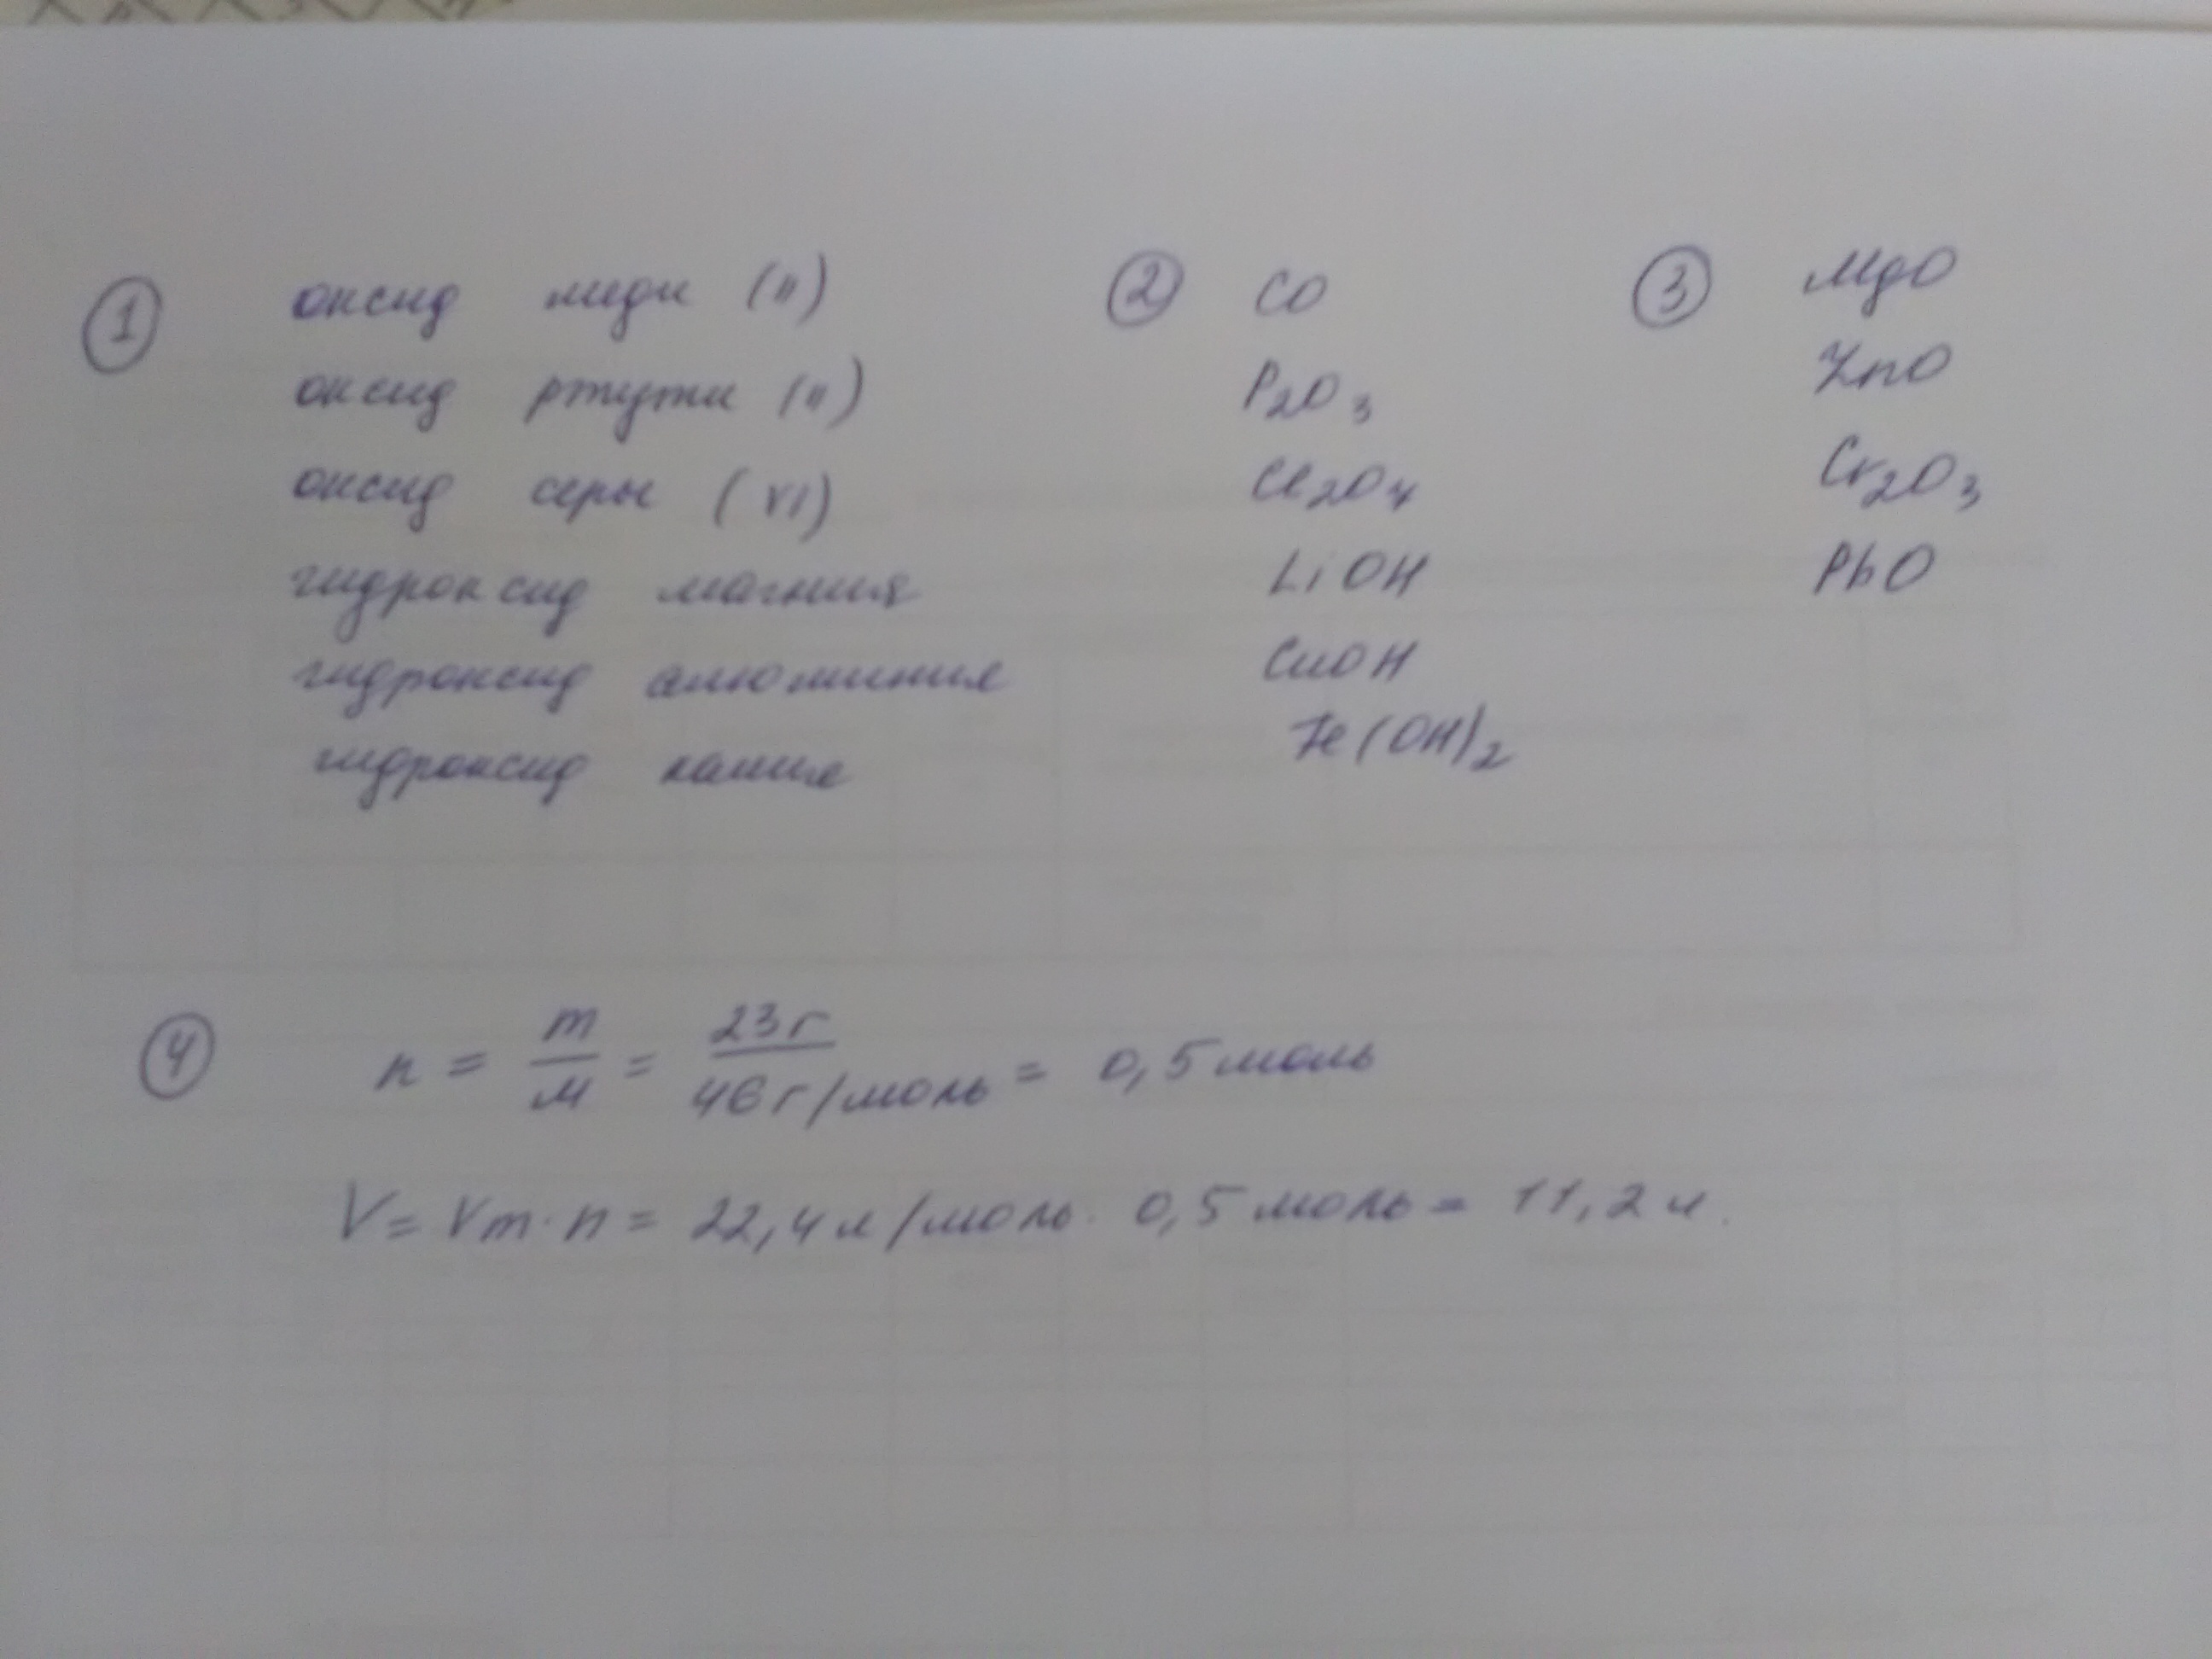 ① оксид меди (II)
оксид ртути (II)
оксид серы (VI)
гидроксид магния
гидроксид алюминия
гидроксид калия
② CO
P₂O₃
Cl₂O₇
LiOH
CuOH
Fe(OH)₂
③ MgO
ZnO
Cr₂O₃
PbO
④ n = m/M = 23г/46г/моль = 0,5моль
V = Vm·n = 22,4л/моль · 0,5моль = 11,2л.